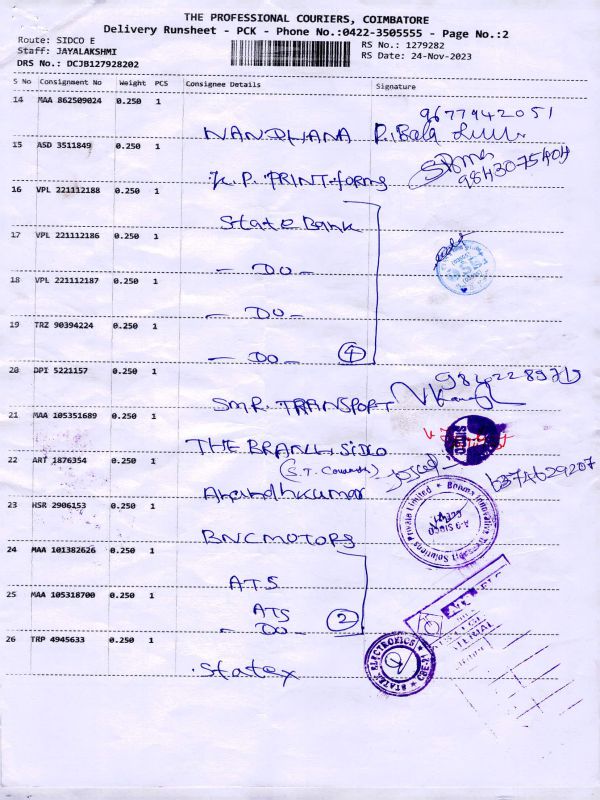 THE PROFESSIONAL COURIERS, COIMBATORE
Delivery Runsheet - PCK - Phone No.:0422-3505555 - Page No.:2
Route: SIDCO E
RS No.: 1279282
Staff: JAYALAKSHMI
RS Date: 24-Nov-2023
DRS No.: DCJB127928202
S No Consignment No Weight PCS Consignee Details Signature
14 MAA 862509024 0.250 1
9677942051
NANDHANA P. Bala
15 ASD 3511849 0.250 1
K.P. PRINT forms 9843075404
16 VPL 221112188 0.250 1
State Bank
17 VPL 221112186 0.250 1
- DO -
18 VPL 221112187 0.250 1
- DO -
19 TRZ 90394224 0.250 1
- DO - 4
20 DPI 5221157 0.250 1
SMR. TRANSPORT
21 MAA 105351689 0.250 1
THE BRANCH SIDCO
22 ART 1876354 0.250 1
Anandhkumar
23 HSR 2906153 0.250 1
BNC MOTORS
24 MAA 101382626 0.250 1
ATS
25 MAA 105318700 0.250 1
ATS
- DO - 2
26 TRP 4945633 0.250 1
Statex